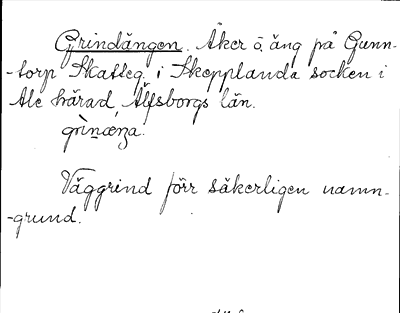 Grindängen. Åker o. äng på Gunn-
-torp Skatteg. i Skepplanda socken i
Ale härad, Älfsborgs län.
Väggrind förr säkerligen namn-
-grund.